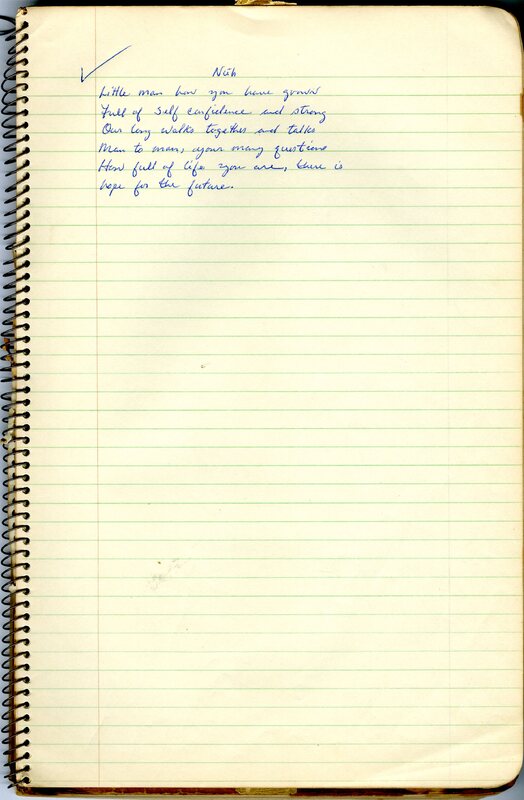 Nuh
Little man how you have grown
Full of self confidence and strong
Our long walks together and talks
Man to man, your many questions
How full of life you are, there is
hope for the future.